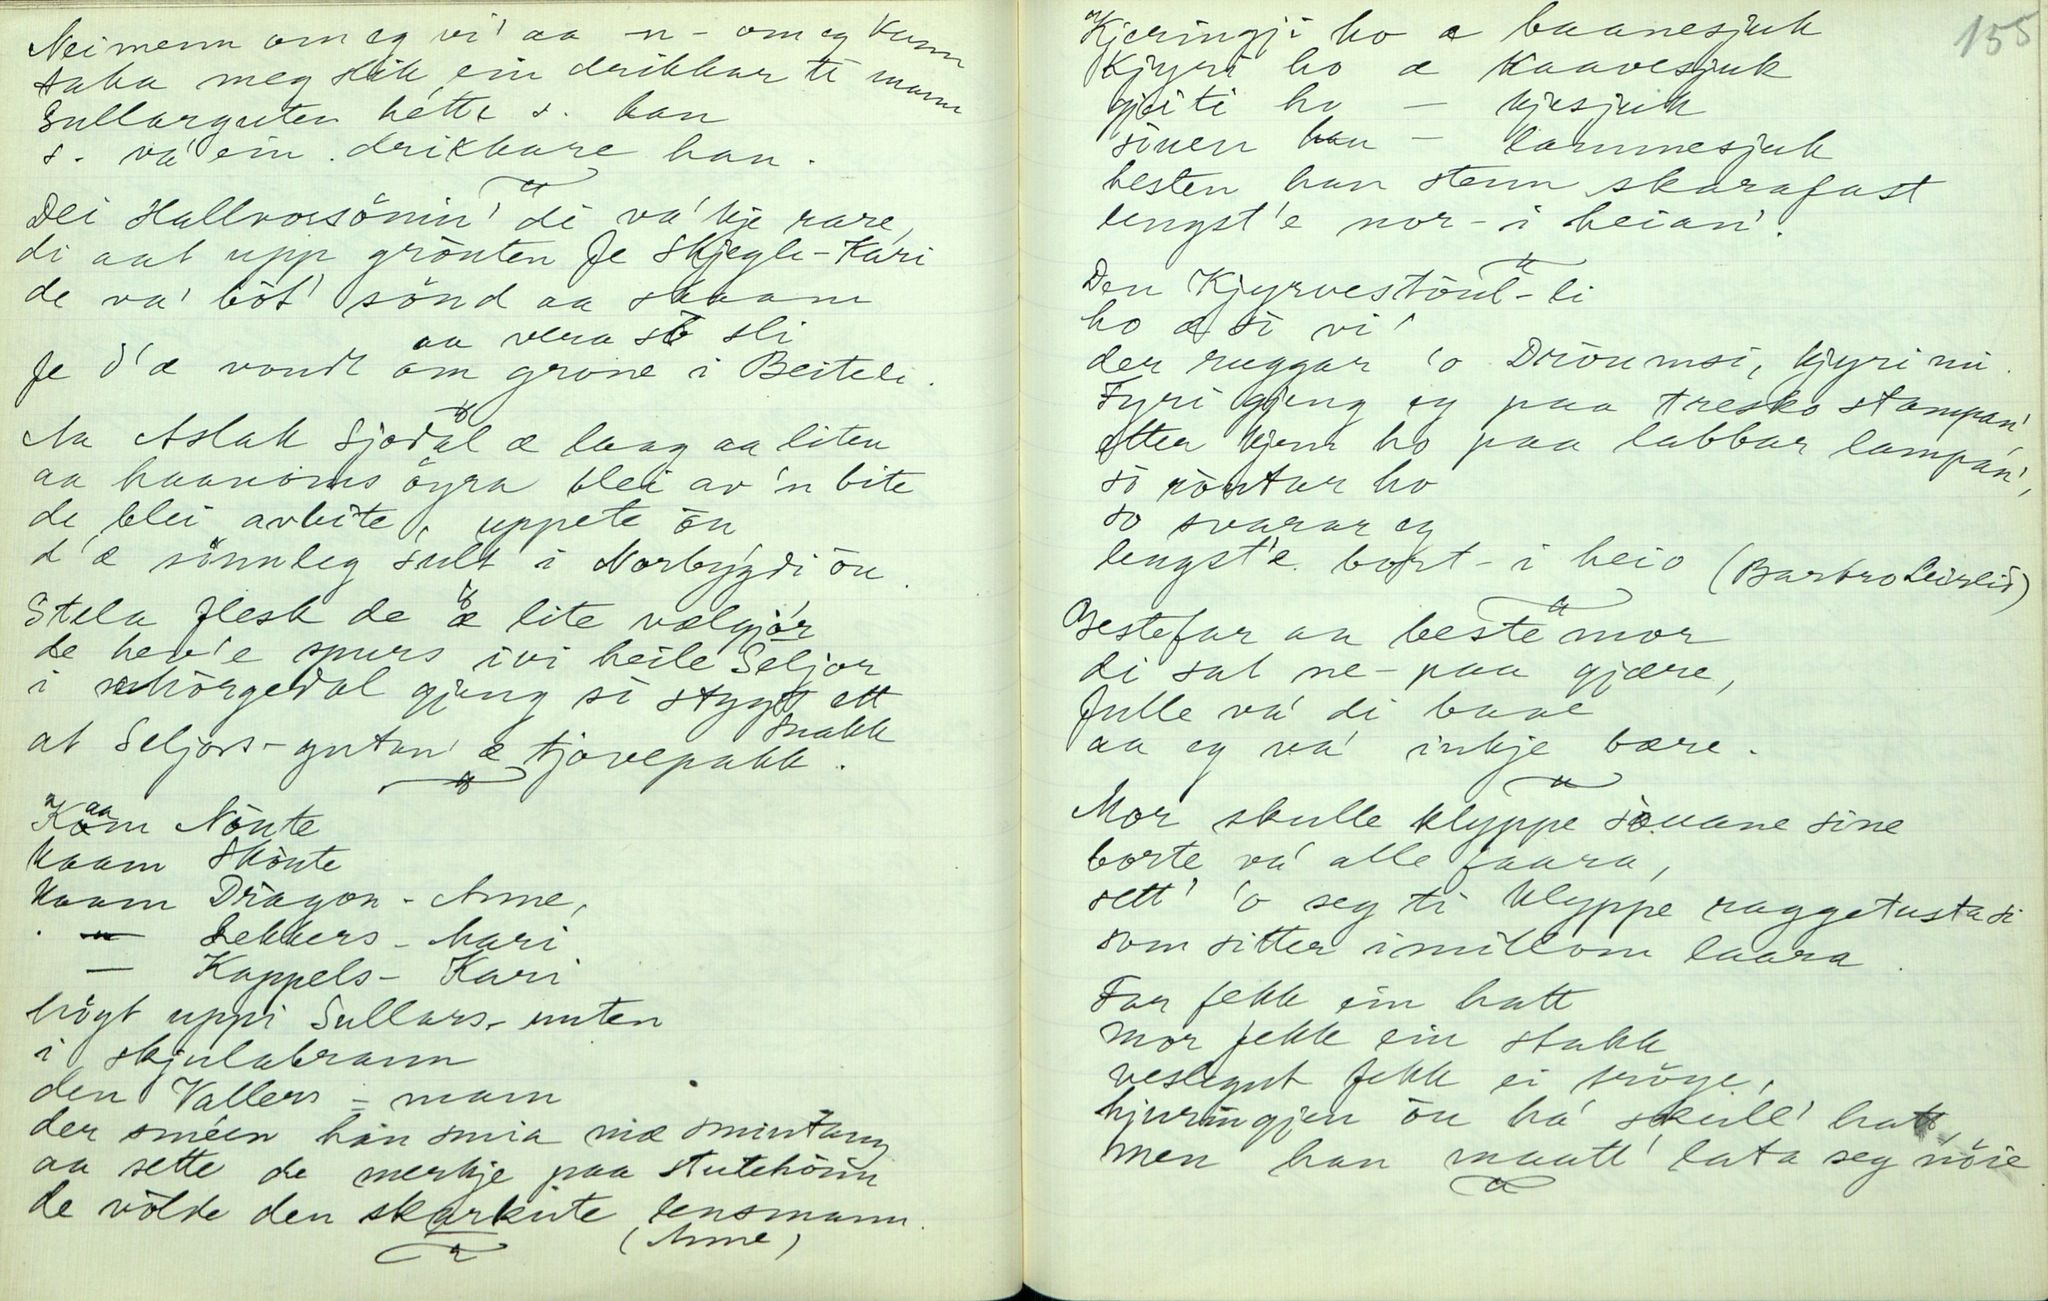 Nei menn om eg vi' aa -n- om eg kann
taka meg slik ein drikkar ti mann
Sullarguten hette s. han
s. va' ein drikkare han.
Dei Hallvorsönin' di va' kje rare,
di aat upp grönten fe Skjegle-Kari
de va' böt' sönd aa skaam
aa vera sö sli
fe d'æ vondt om grone i Beiteli.
Aa Aslak Sjodal æ laag aa liten
aa haanoms öyra blei av'n bite
de blei avbite, uppete ön
d'æ sönnleg sult i Norbygdi ön.
Stela flesk de æ lite velgjor
de hev'e spurs ivi heile Seljor
i Mörgedal gjeng si stygt ett
snakk
at Seljors-gutan' æ tjovepakk.
Kaam Nönte
kaam Skönte
kaam Dragon-Anne,
" Lekkers-Mari
— Kappels-Kari
högt uppi Sullars-nuten
i skjulabrann
den Vallers-mann
der sméen han smia mæ smintang
aa sette de merkje paa stutehönn
de völde den skarkute lensmann.
(Anne)
155
Kjeringji ho æ baanesjuk
Kjyri ho æ kaavesjuk
gjeiti ho — kjesjuk
söuen han — lammesjuk
hesten han stenn skarafast
lengst'e nor-i heian'.
Den Kjyrvestöul-li
ho æ si vi'
der ruggar 'o Dröumsi, kjyri mi.
Fyri gjeng eg paa tresko stampan',
etter kjem ho paa labbar lampan',
sö röutar ho
so svarar eg
lengst'e bort-i heio (Barbro Leirlid)
Bestefar aa beste mor
di sat ne-paa gjære,
fulle va' di baae
aa eg va' inkje bære.
Mor skulle klyppe söuane sine
borte va' alle faara,
sett' 'o seg ti klyppe raggetusta si
som sitter imillom laara.
Far fekk ein hatt
mor fekk ein stakk
veslegut fekk ei tröye,
hjuringjen ön ha' skull' hatt,
men han maatt' lata seg nöie